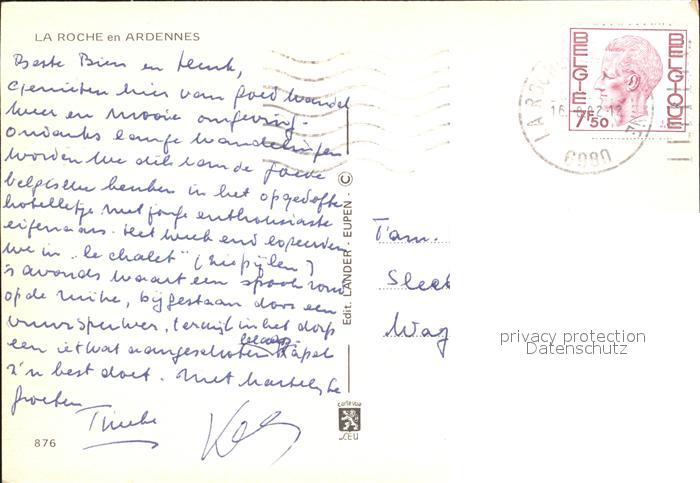 LA ROCHE en ARDENNES
Beste Bien en Henk,
Genieten hier van goed wandel
weer en mooie omgeving.
Ondanks lange wandelingen
worden we dik van de goede
belgische keuken in het opgedofte
hotelletje met jonge enthousiaste
eigenaars. Het week end logeerden
we in "le chalet" (zie pijlen)
's avonds waart een spook rond
op de ruïne, bijgestaan door een
vuurspuwer, terwijl in het dorp
een ietwat aangeschoten kapel
z'n best doet. Met hartelijke
groeten
Tineke Kees
876
Edit. LANDER - EUPEN - ©
cartevue
LCEU
BELGIE BELGIQUE
7F50
LA ROCHE
16
6980
Fam.
Sleeb
Wag
privacy protection
Datenschutz